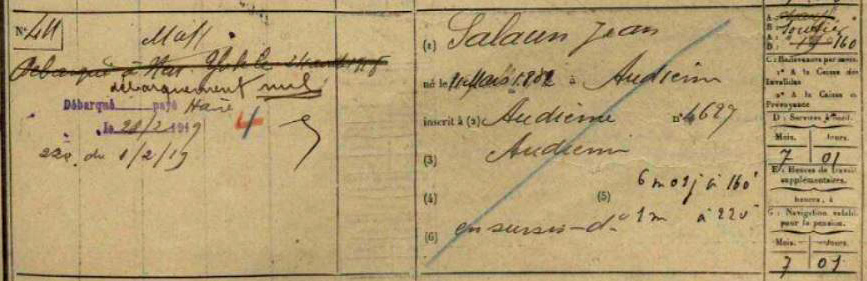 N° 411
Matt
Débarqué à New York le
débarquement nul
Débarqué payé Havre
le 28/2 1919
220 du 1/2/19
4
(1) Salaun Jean
né le 11 Mars 1882 à Audierne
inscrit à (2) Audierne n° 4697
(3) Audierne
(4) (5) 6 m 01 j à 160
(6) en sursis - d° 1 m à 220
A :
B : 160
C : Redevances par mois.
1° A la Caisse des
Invalides
2° A la Caisse de
Prévoyance
D : Services à l'ind.
Mois. Jours.
7 01
E : Heures de travail
supplémentaires.
heures, à
G : Navigation valable
pour la pension.
Mois. Jours.
7 01